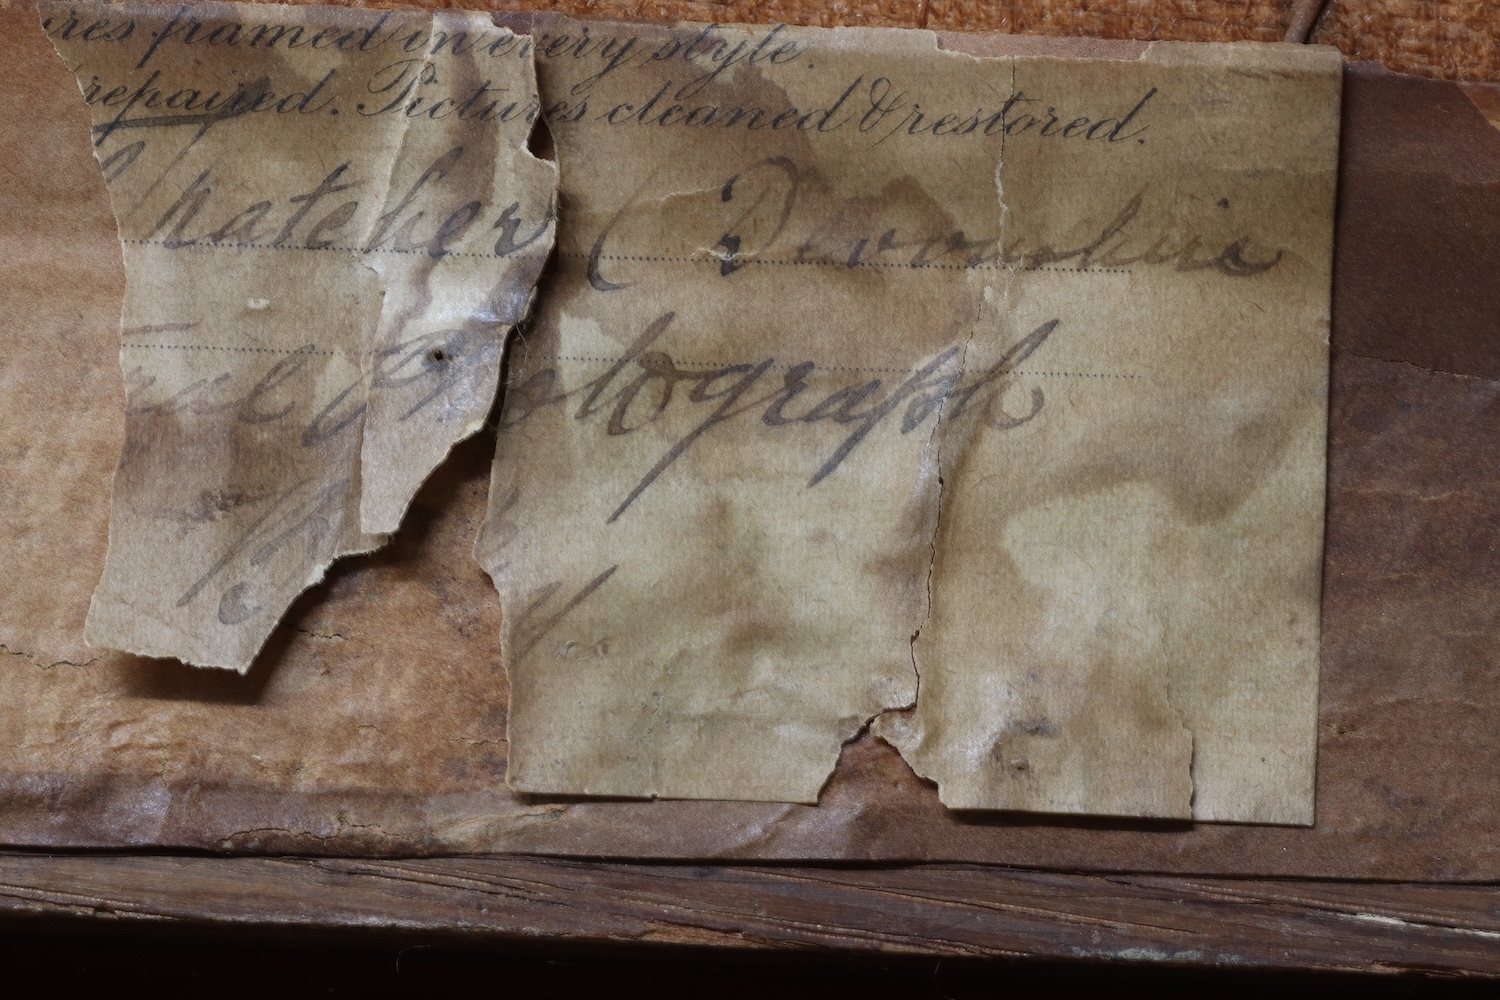 ures framed in every style.
repaired. Pictures cleaned & restored.
Thatcher (Devonshire
Photograph